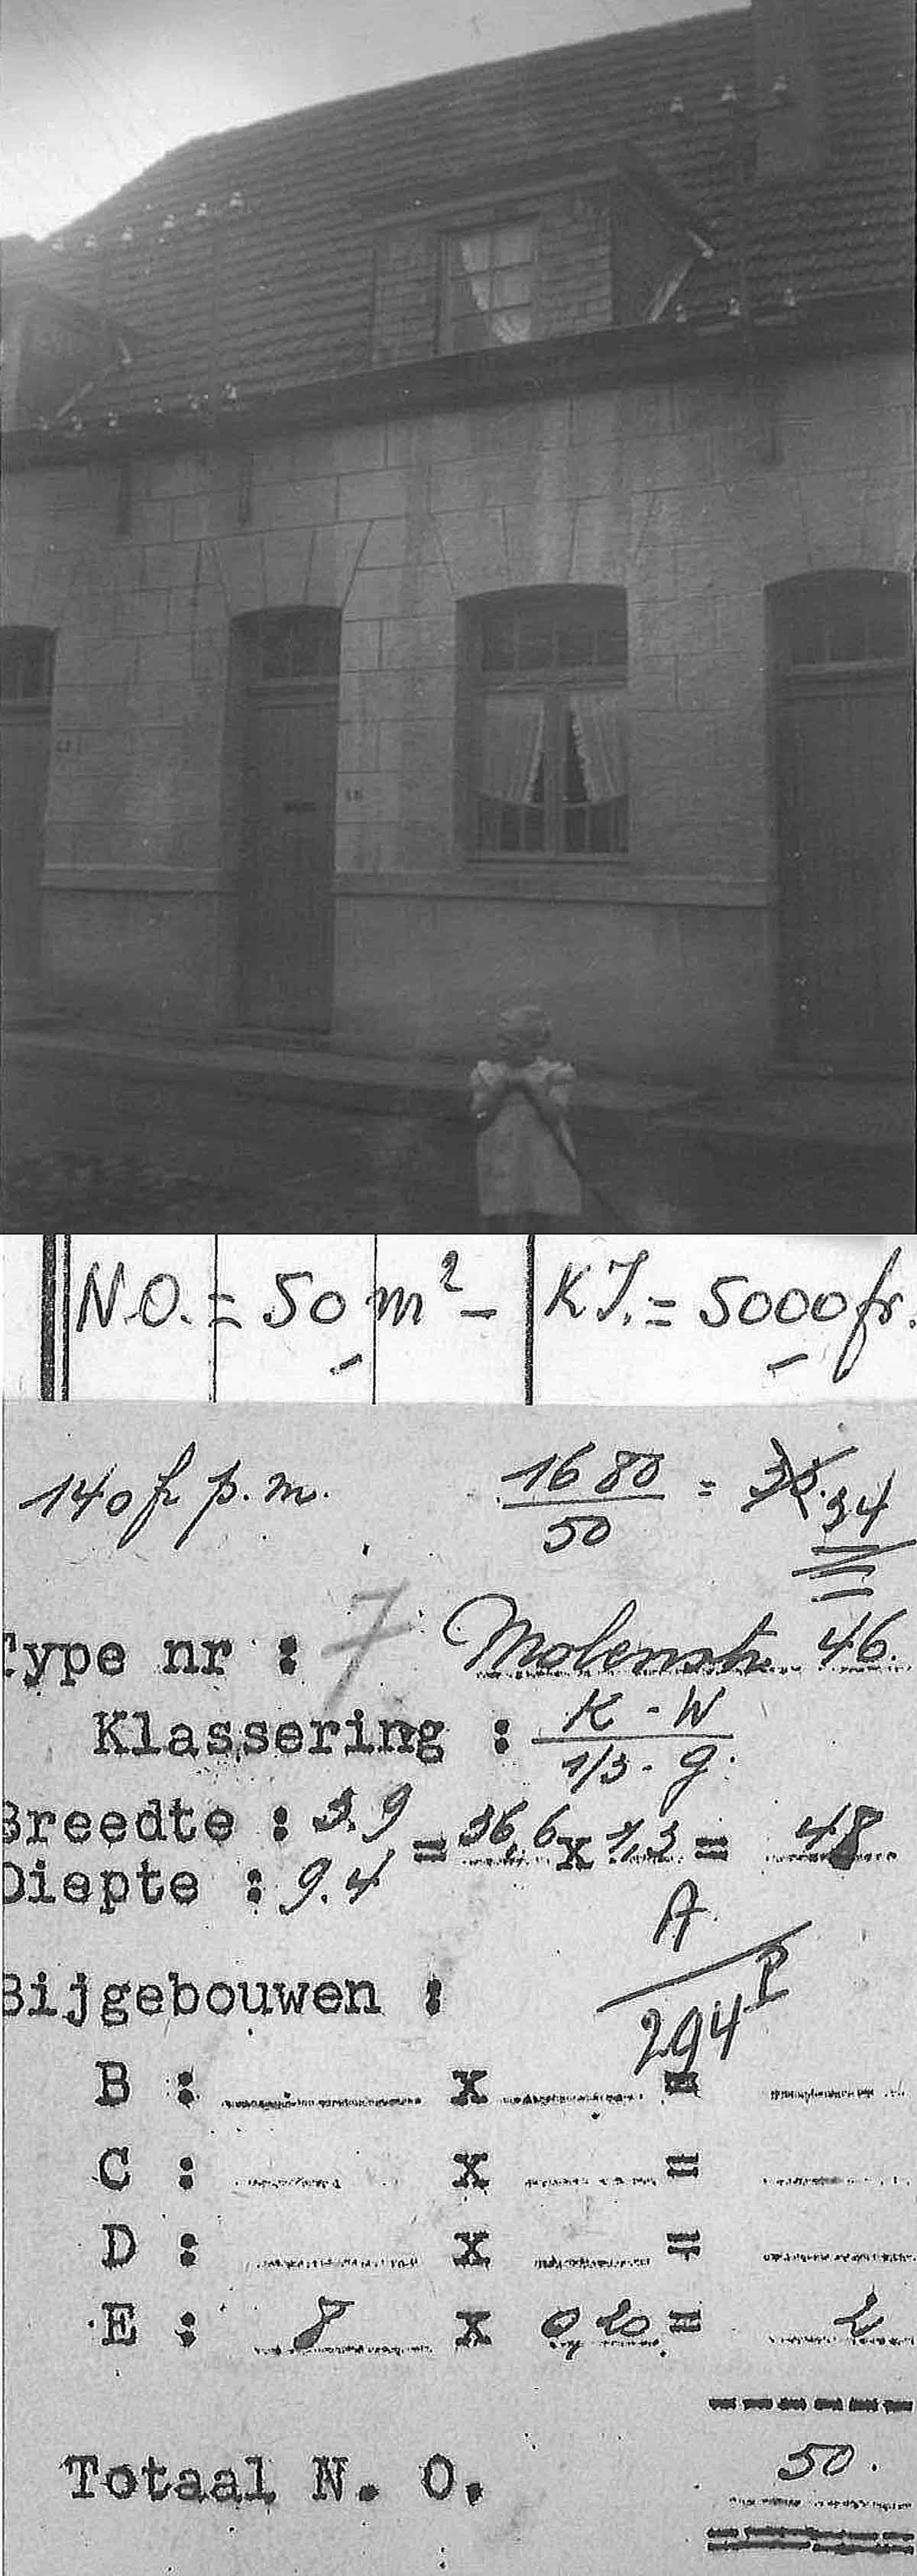 N.O. = 50 m² - K I. = 5000 fr.
140 fr p.m. 1680/50 = 34
Type nr : 7 Molenstr. 46.
Klassering : K - W / 1/3 - g.
Breedte : 3.9 = 36,6 x 1,3 = 48
Diepte : 9.4
A / 294 P
Bijgebouwen :
B : x =
C : x =
D : x =
E : 8 x 0,20 = 2
Totaal N. O. 50.